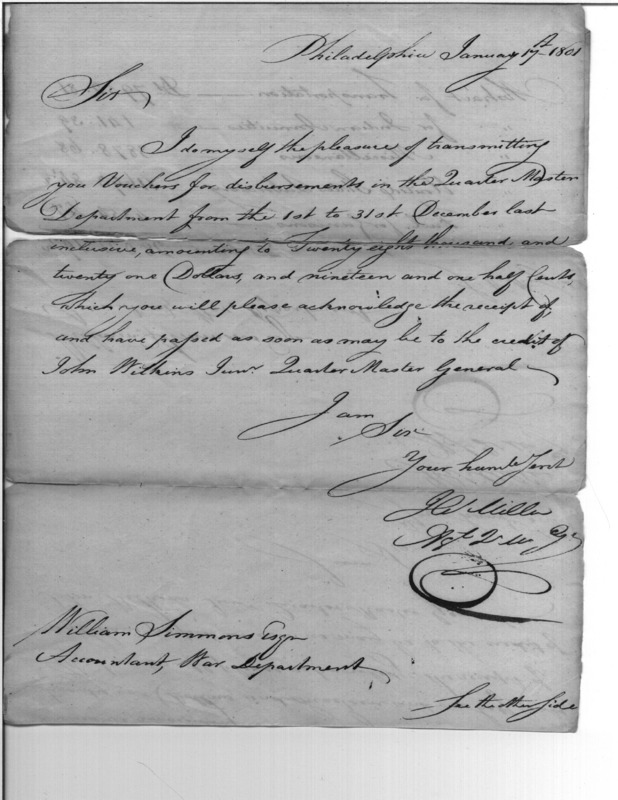 Philadelphia January 17th 1801
Sir
I do myself the pleasure of transmitting
you Vouchers for disbursements in the Quarter Master
Department from the 1st to 31st December last
inclusive, amounting to Twenty eight thousand, and
twenty one Dollars, and nineteen and one half Cents,
which you will please acknowledge the receipt of,
and have passed as soon as may be to the credit of
John Wilkins Junr. Quarter Master General
I am
Sir
Your humle Servt
Miller
William Simmons Esqr
Accountant, War Department
See the other Side